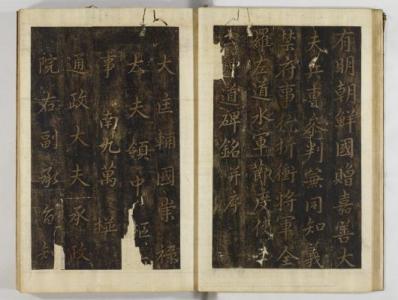 有明朝鮮國贈嘉善大
夫兵曹參判兼同知義
禁府事行折衝將軍全
羅左道水軍節度使
道碑銘并序
大匡輔國崇祿
大夫領中樞
事 南九萬 撰
通政大夫承政
院右副承旨